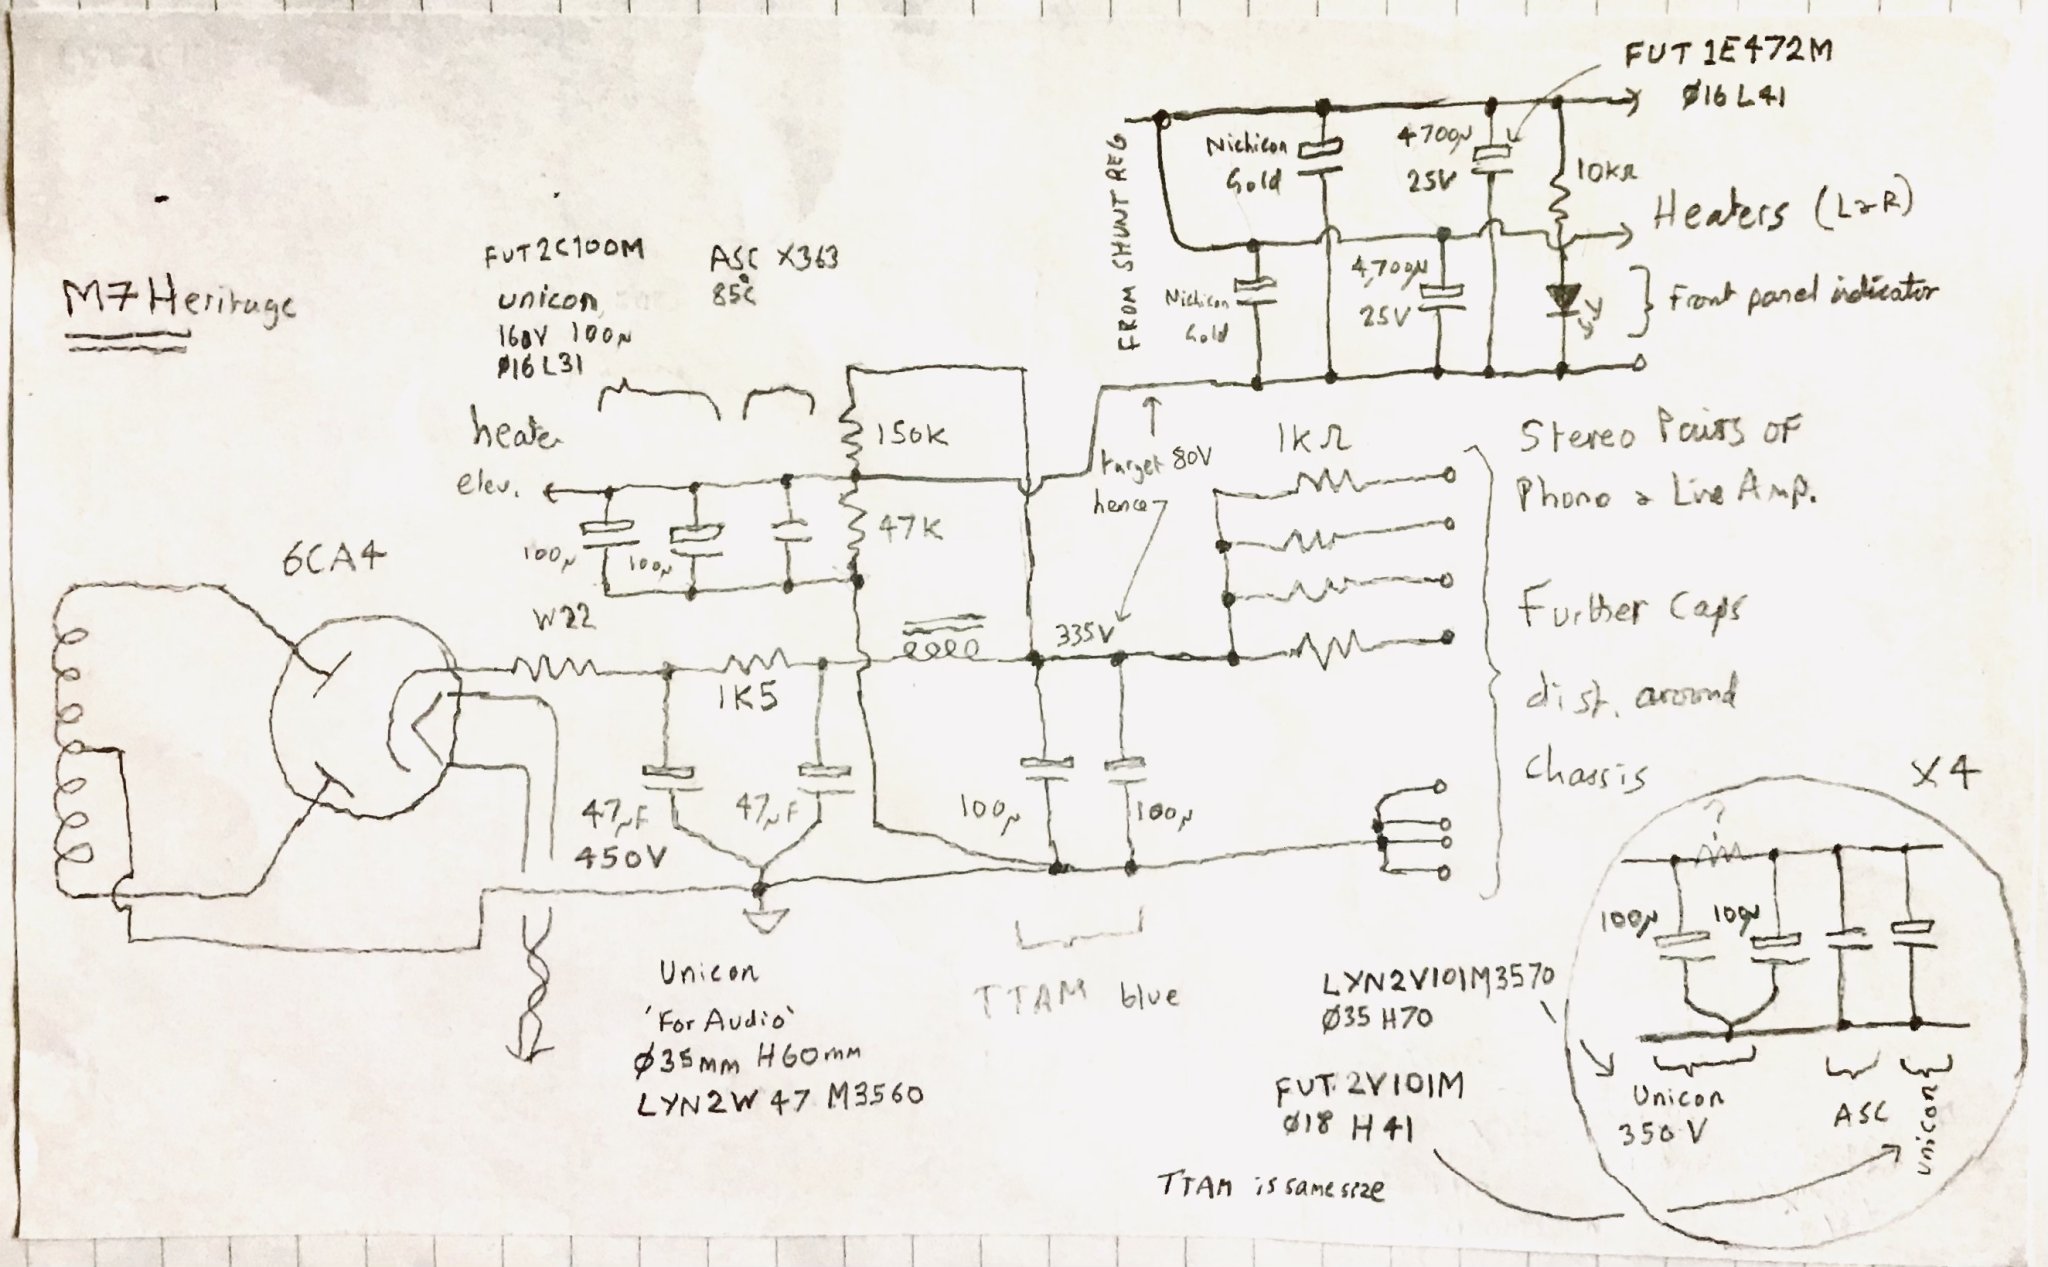 M7 Heritage
FUT2C100M
unicon,
160V 100μ
Ø16 L31
ASC X363
85°C
heater
elev.
100μ
100μ
150K
47K
6CA4
W22
1K5
47μF
450V
47μF
Unicon
'For Audio'
Ø35mm H60mm
LYN2W 47 M3560
335V
100μ
100μ
TTAM blue
target 80V
hence
FROM SHUNT REG
Nichicon
Gold
Nichicon
Gold
4700μ
25V
4,700μ
25V
FUT 1E472M
Ø16 L41
10KΩ
Heaters (L&R)
Front panel indicator
1KΩ
Stereo Pairs OF
Phono & Line Amp.
Further Caps
dist. around
Chassis
X4
?
100μ
100μ
Unicon
350V
ASC
unicon
LYN2V101M3570
Ø35 H70
FUT 2V101M
Ø18 H41
TTAM is same size